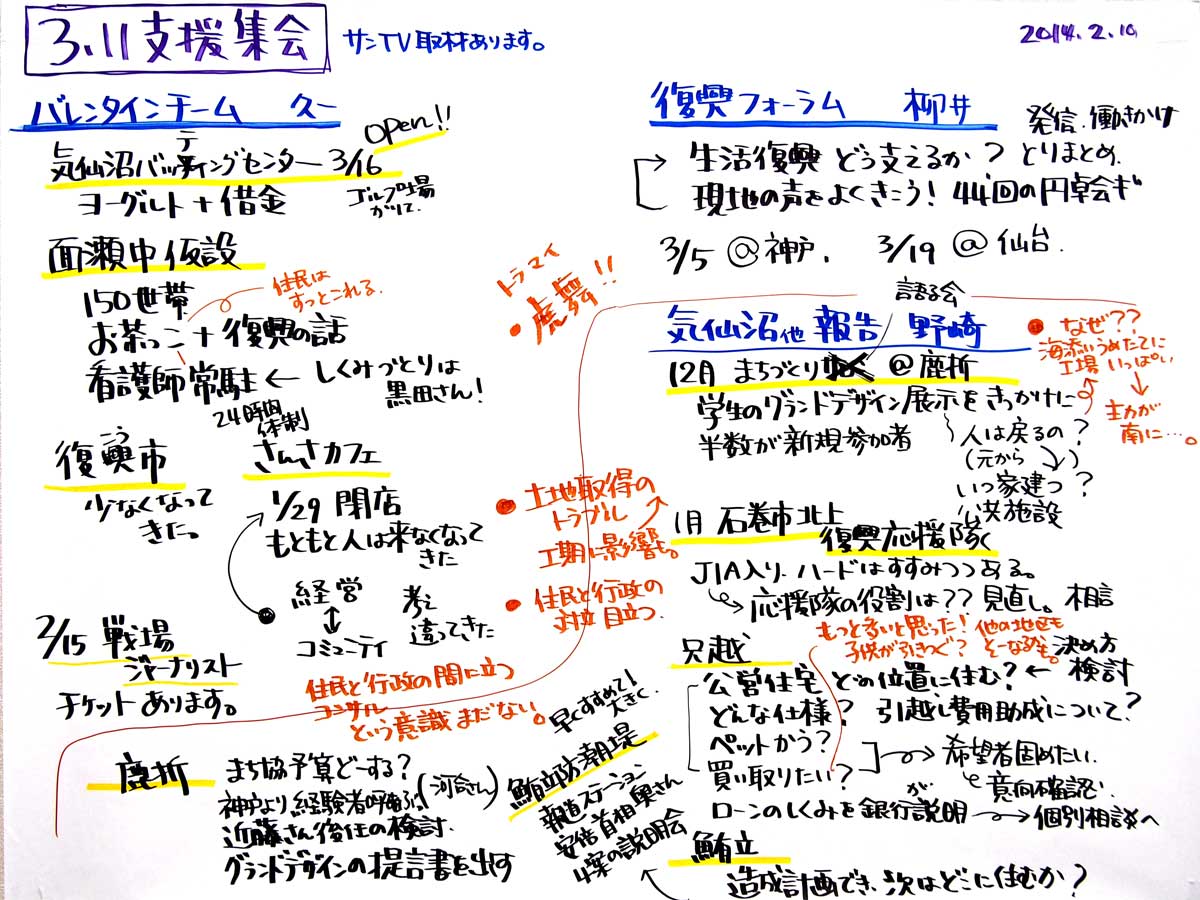 3.11支援集会
サンTV取材あります。
2014.2.10
バレンタインチーム 久一
Open!!
気仙沼バッティングセンター 3/16
ヨーグルト+借金
ゴルフ場
かりて
面瀬中仮設
150世帯
住民は
すっとこれる
お茶っこ+復興の話
看護師常駐 ← しくみづくりは
黒田さん!
24時間
体制
復興市
少なくなって
きた。
さんさカフェ
1/29 閉店
もともと人は来なくなって
きた
経営
↕
コミュニティ
考え
違ってきた
2/15 戦場
ジャーナリスト
チケットあります。
トラマイ
・虎舞!!
・土地取得の
トラブル
工期に影響も。
・住民と行政の
対立目立つ。
住民と行政の間に立つ
コンサル
という意識まだない。
鹿折
まち協予算どーする?
神戸より経験者呼ぶ(河合さん)
近藤さん後任の検討.
グランドデザインの提言書を出す
早くすすめて!
大きく.
鮪立防潮堤
報道ステーション
安倍首相奥さん
4案の説明会
復興フォーラム 柳井
発信.働きかけ
生活復興 どう支えるか? とりまとめ.
現地の声をよくきこう! 44回の円卓会ギ
3/5 @神戸. 3/19 @仙台.
語る会
気仙沼他 報告 野崎
・なぜ??
海添いうめたてに
工場いっぱい.
↓
主力が
南に…。
12月 まちづくり @鹿折
学生のグランドデザイン展示をきっかけに
半数が新規参加者
人は戻るの?
(元から ↓)
いつ家建つ?
公共施設
1月 石巻市北上
復興応援隊
JIA入り.ハードはすすみつつある。
応援隊の役割は?? 見直し。相言
もっと多いと思った! 他の地区も
子供が引きつぐ? そーなるかも。
只越
決め方
検討
公営住宅 どの位置に住む? ←
どんな仕様? 引越し費用助成について?
ペットかう?
買い取りたい?
希望者固めたい.
意向確認
ローンのしくみを銀行が説明 → 個別相談へ
鮪立
造成計画でき、次はどこに住むか?